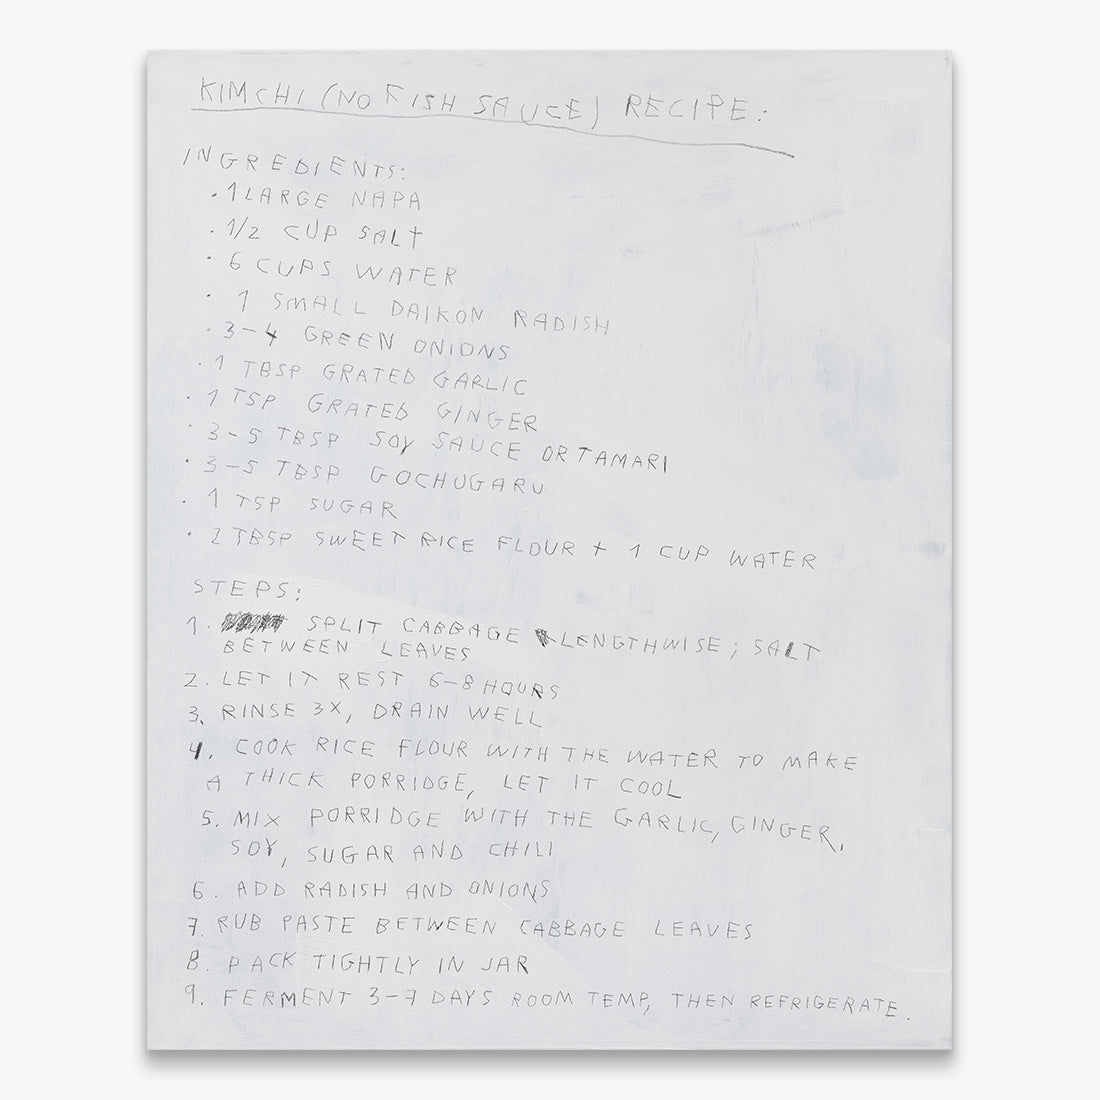 KIMCHI (NO FISH SAUCE) RECIPE:
INGREDIENTS:
· 1 LARGE NAPA
· 1/2 CUP SALT
· 6 CUPS WATER
· 1 SMALL DAIKON RADISH
· 3-4 GREEN ONIONS
· 1 TBSP GRATED GARLIC
· 1 TSP GRATED GINGER
· 3-5 TBSP SOY SAUCE OR TAMARI
· 3-5 TBSP GOCHUGARU
· 1 TSP SUGAR
· 2 TBSP SWEET RICE FLOUR + 1 CUP WATER
STEPS:
1. SPLIT CABBAGE LENGTHWISE; SALT
BETWEEN LEAVES
2. LET IT REST 6-8 HOURS
3. RINSE 3X, DRAIN WELL
4. COOK RICE FLOUR WITH THE WATER TO MAKE
A THICK PORRIDGE, LET IT COOL
5. MIX PORRIDGE WITH THE GARLIC, GINGER,
SOY, SUGAR AND CHILI
6. ADD RADISH AND ONIONS
7. RUB PASTE BETWEEN CABBAGE LEAVES
8. PACK TIGHTLY IN JAR
9. FERMENT 3-7 DAYS ROOM TEMP, THEN REFRIGERATE.